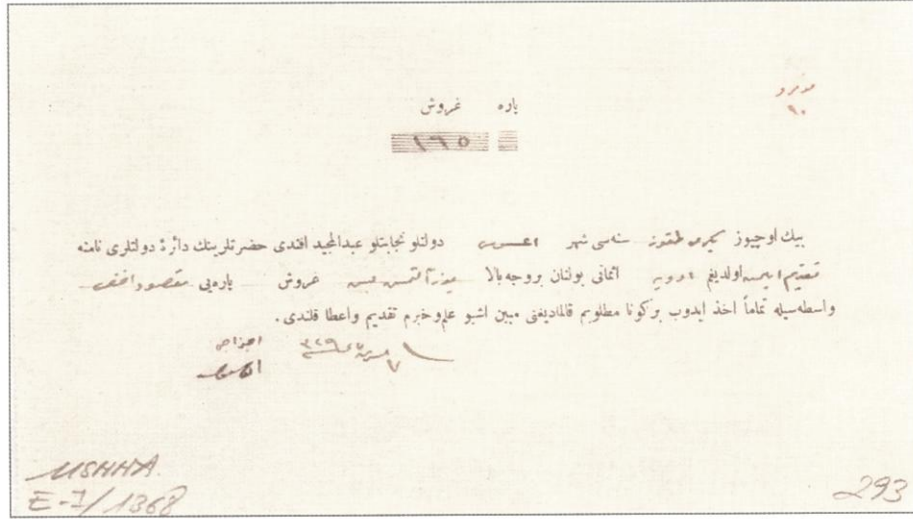 نومرو
٩٠
پاره غروش
١٦٥
بيك اوچيوز يكرمى طقوز سنه‌سى شهر اغستوس دولتلو نجابتلو عبدالمجيد افندى حضرتلرينك دائرۀ دولتلرى نامنه
تقديم ايتمش اولديغم ادويه اثمانى بولنان بروجه‌بالا يوز آلتمش بش غروش پاره‌يى مقصود افندى
واسطه‌سيله تماماً اخذ ايدوب بركونا مطلوبم قالماديغنى مبين اشبو علم‌وخبرم تقديم واعطا قلندى.
اجزاجى ٣٢٩
MSHHA
E-I/1368
293